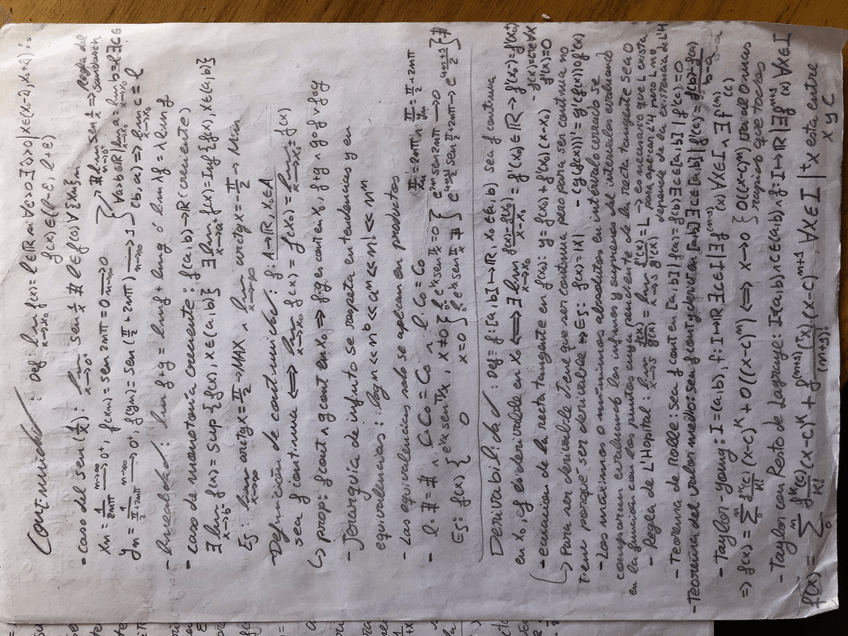 Continuidad : Def: lim x→x₀ f(x) = l ∈ ℝ sii ∀ε>0 ∃δ>0 | x∈(x₀-δ, x₀+δ) :
f(x) ∈ (l-ε, l+ε)
- caso del sen(1/x) : lim x→0⁺ sen 1/x ∄ l ∈ f(0) ∀{xn}n
xn = 1/2nπ n→∞ → 0⁺, f(xn) = sen 2nπ = 0 → 0
yn = 1/(π/2+2nπ) n→∞ → 0⁺, f(yn) = sen(π/2+2nπ) → 1
⇒ ∄ lim x→0⁺ sen 1/x ⇒ Regla del sandwich
- Linealidad : lim f+g = lim f + lim g ó lim λf = λ lim f
- caso de monotonía creciente : f(a,b)→ℝ (creciente)
∃ lim x→b⁻ f(x) = Sup{f(x), x∈(a,b)} ∃ lim x→a⁺ f(x) = Inf{f(x), x∈(a,b)}
Ej : lim x→∞ arctg x = π/2 → MAX ∧ lim x→-∞ arctg x = -π/2 → Min
Definición de continuidad : f: A→ℝ, x₀∈A
sea f continua ⟺ lim x→x₀ f(x) = f(x₀) = lim x→x₀ f(x)
↳ prop: f cont ∧ g cont en x₀ ⇒ f·g en cont en x₀, f+g ∧ g∘f ∨ f∘g
- Jerarquía de infinito se respeta en tendencias y en
equivalencias : log n << n^b << a^n << n! << n^n
- Las equivalencias solo se aplican en productos
- l·∄ = ∄ ∧ C·C₀ = C₀ ∧ l·C₀ = C₀
Ej : f(x) { e^{1/x} sen π/x, x≠0
0 x=0
Derivabilidad : Def = f: [a,b] → ℝ, x₀∈(a,b) sea f continua
en x₀, f es derivable en x₀ ⟺ ∃ lim x→x₀ (f(x)-f(x₀))/(x-x₀) = f'(x₀) ∈ ℝ → f'(x₀⁻) = f'(x₀⁺)
- ecuación de la recta tangente en f(x₀): y = f(x₀) + f'(x₀)(x-x₀)
↳ Para ser derivable tiene que ser continua pero para ser continua no
tiene porque ser derivable ⇒ Ej: f(x) = |x| - (g(f(x)))' = g'(f(x)) f'(x)
- Los máximos o mínimos absolutos en intervalo cerrado se
comparan evaluando los ínfimos y supremos del intervalo evaluando
en la función con los puntos cuya pendiente de la recta tangente sea 0
- Regla de L'Hôpital : lim x→s f(x)/g(x) = lim x→s f'(x)/g'(x) = L → es necesario que L exista
para aplicar L'H pero L no
depende de la existencia de L'H
- Teorema de Rolle : sea f cont en [a,b] | f(a) = f(b) ∃c∈[a,b] | f'(c) = 0
- Teorema del valor medio : sea f cont y deriv en [a,b] ∃c∈[a,b] | f'(c) = (f(b)-f(a))/(b-a)
- Taylor-Young : I=(a,b), f: I→ℝ ∃c∈I | ∃f^(n-1)(x) ∀x∈I ∧ ∃f^(n)(c)
⇒ f(x) = Σ f^k(c)/k! (x-c)^k + O((x-c)^n) ⟺ x→0
- Taylor con Resto de Lagrange : I=(a,b) ∧ c∈(a,b) ∧ f: I→ℝ | ∃f^(n+1)(x) ∀x∈I
f(x) = Σ f^k(c)/k! (x-c)^k + f^(n+1)(tx)/(n+1)! (x-c)^{n+1} ∀x∈I | tx esta entre
x y c